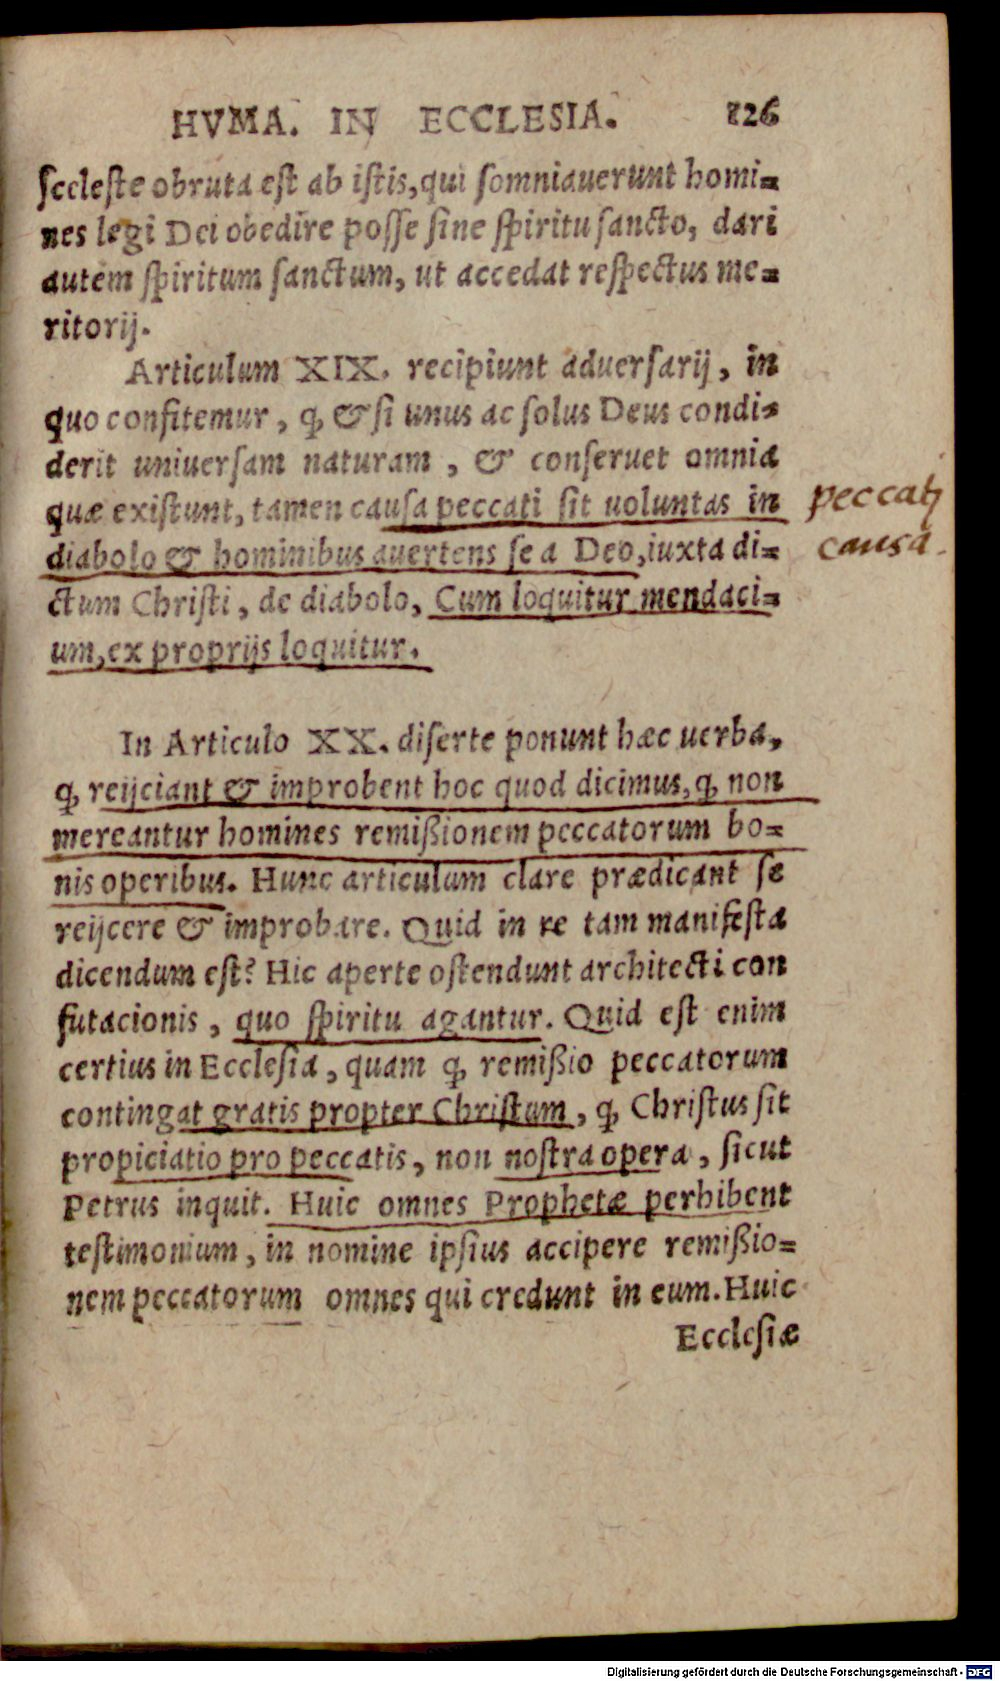 HVMA. IN ECCLESIA. 126
ſceleſte obruta eſt ab iſtis, qui ſomniauerunt homi=
nes legi Dei obedire poſſe ſine ſpiritu ſancto, dari
autem ſpiritum ſanctum, ut accedat reſpectus me=
ritorij.
Articulum XIX. recipiunt aduerſarij, in
quo confitemur, ꝙ & ſi unus ac ſolus Deus condi=
derit uniuerſam naturam, & conſeruet omnia
quæ exiſtunt, tamen cauſa peccati ſit uoluntas in
diabolo & hominibus auertens ſe a Deo, iuxta di=
ctum Chriſti, de diabolo, Cum loquitur mendaci=
um, ex proprijs loquitur.
peccatj
causa.
In Articulo XX. diſerte ponunt hæc uerba,
ꝙ reijciant & improbent hoc quod dicimus, ꝙ non
mereantur homines remißionem peccatorum bo=
nis operibus. Hunc articulum clare prædicant ſe
reijcere & improbare. Quid in re tam manifeſta
dicendum eſt? Hic aperte oſtendunt architecti con
futacionis, quo ſpiritu agantur. Quid eſt enim
certius in Eccleſia, quam ꝙ remißio peccatorum
contingat gratis propter Chriſtum, ꝙ Chriſtus ſit
propiciatio pro peccatis, non noſtra opera, ſicut
Petrus inquit. Huic omnes Prophetæ perhibent
teſtimonium, in nomine ipſius accipere remißio=
nem peccatorum omnes qui credunt in eum. Huic
Eccleſiæ
Digitalisierung gefördert durch die Deutsche Forschungsgemeinschaft - DFG